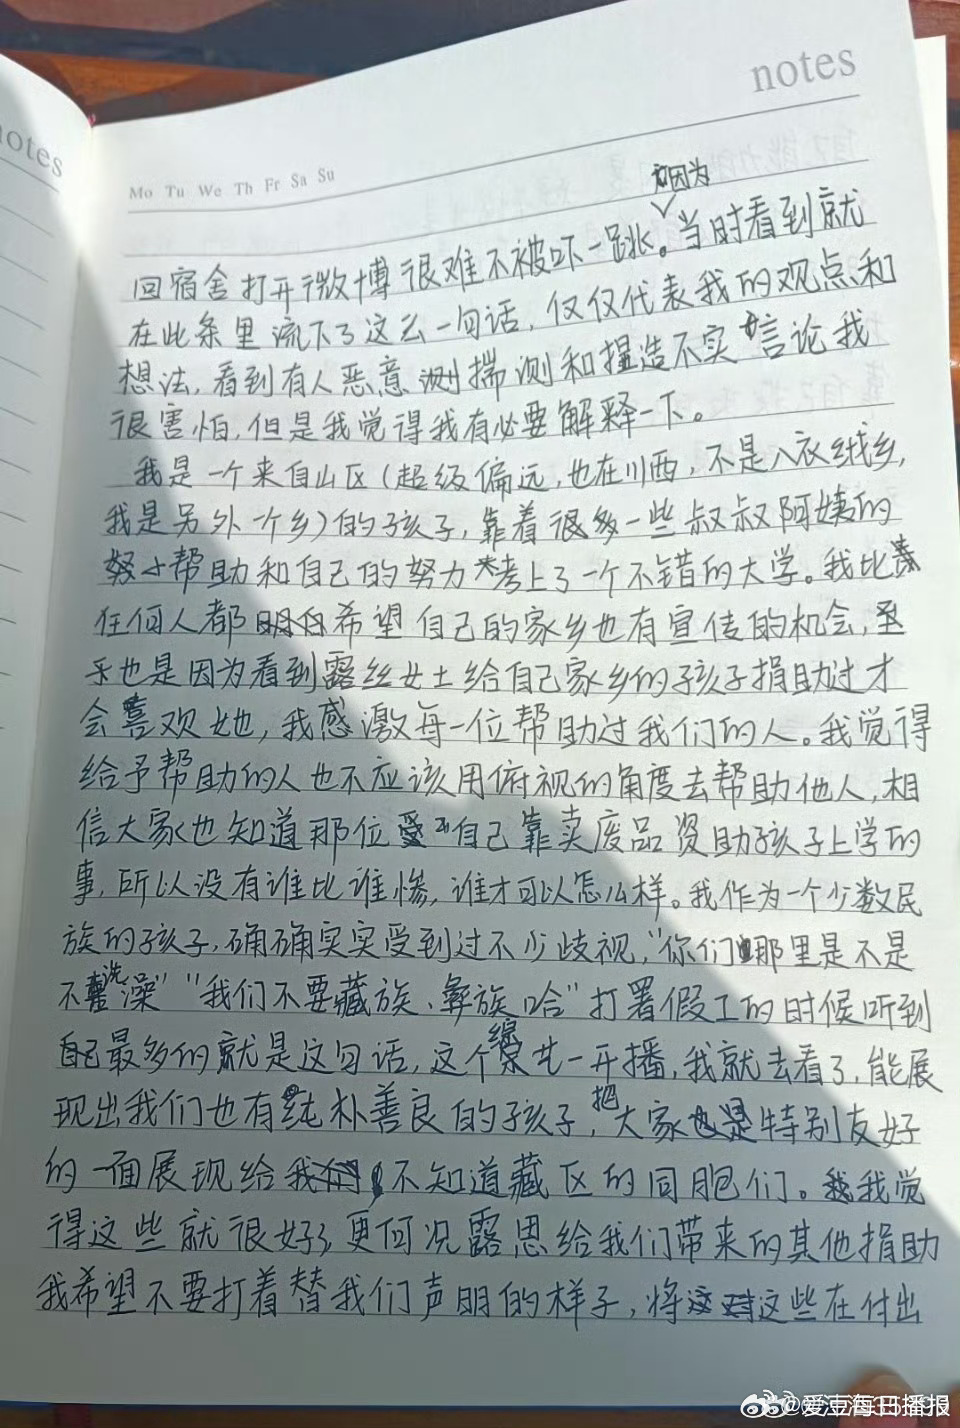 notes
notes
Mo Tu We Th Fr Sa Su
因为
回宿舍打开微博很难不被吓一跳。当时看到就
在此条里流下了这么一句话，仅仅代表我的观点和
想法，看到有人恶意揣测和捏造不实言论我
很害怕，但是我觉得我有必要解释一下。
我是一个来自山区（超级偏远，也在川西，不是八衣绒乡，
我是另外一个乡）的孩子，靠着很多一些叔叔阿姨的
帮助和自己的努力考上了一个不错的大学。我比
任何人都希望自己的家乡也有宣传的机会，至
也是因为看到露丝女士给自己家乡的孩子捐助过才
会喜欢她，我感激每一位帮助过我们的人。我觉得
给予帮助的人也不应该用俯视的角度去帮助他人，相
信大家也知道那位自己靠卖废品资助孩子上学的
事，所以没有谁比谁惨，谁才可以怎么样。我作为一个少数民
族的孩子，确确实实受到过不少歧视，“你们那里是不是
不洗澡”“我们不要藏族、彝族哈”打署假工的时候听到
自己最多的就是这句话，这个综艺一开播，我就去看了，能展
现出我们也有纯朴善良的孩子，把大家特别友好
的一面展现给不知道藏区的同胞们。我觉
得这些就很好了，更何况露思给我们带来的其他捐助
我希望不要打着替我们声明的样子，将这些在付出